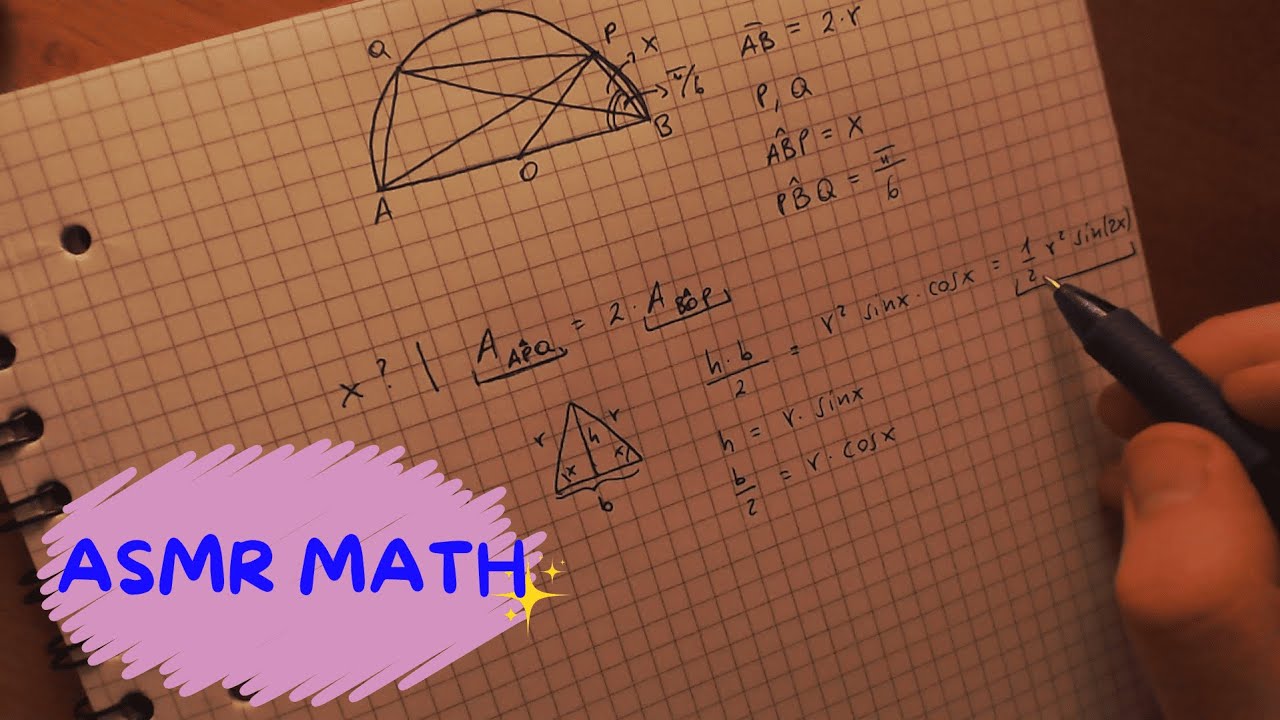 Q
P
x
π/6
B
O
A
A̅B̅ = 2·r
P, Q
AB̂P = x
PB̂Q = π/6
x? | A_AP̂Q = 2·A_BÔP
h·b/2 = r² sinx·cosx = 1/2 r² sin(2x)
h = r·sinx
b/2 = r·cosx
r
r
h
x
x
b
ASMR MATH